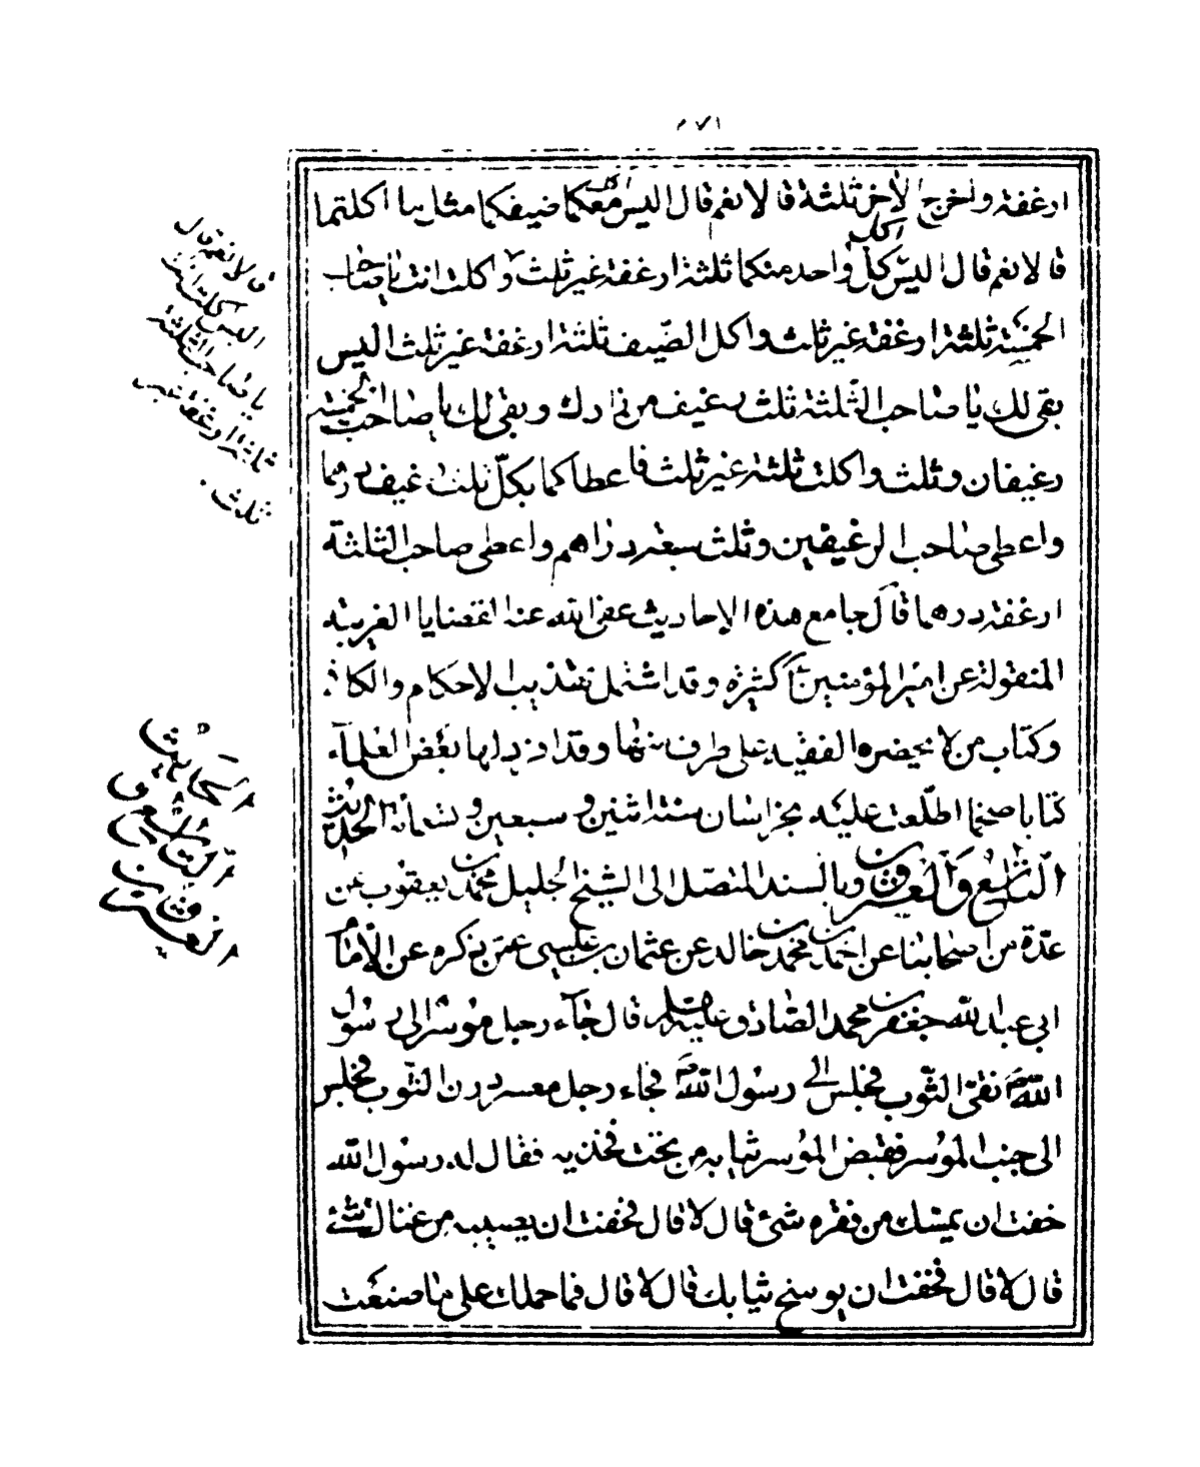 ٢٧١
ارغفة واخرج الآخر ثلثة قالا نعم قال اليس اكل معكما ضيفكما مثل ما اكلتما
قالا نعم قال اليس اكل كل واحد منكما ثلثة ارغفة غير ثلث واكلت انت يا صاحب
الخمسة ثلثة ارغفة غير ثلث واكل الضيف ثلثة ارغفة غير ثلث اليس
بقى لك يا صاحب الثلثة ثلث رغيف من زادك وبقى لك يا صاحب الخمسة
رغيفان وثلث واكلت ثلثة غير ثلث فاعطاكما بكل ثلث رغيف درهما
واعطى صاحب الرغيفين وثلث سبعة دراهم واعطى صاحب الثلثة
ارغفة درهما قال جامع هذه الاحاديث عفى الله عنه القضايا الغريبة
المنقولة عن امير المؤمنين ع كثيرة وقد اشتمل تهذيب الاحكام والكافى
وكتاب من لا يحضره الفقيه على طرف منها وقد افرد لها بعض العلماء
كتابا ضخما اطلعت عليه بخراسان سنة اثنين وسبعين وتسعمائة الحديث
التاسع والعشرون وبالسند المتصل الى الشيخ الجليل محمد بن يعقوب عن
عدة من اصحابنا عن احمد بن محمد بن خالد عن عثمان بن عيسى عمن ذكره عن الامام
ابى عبد الله جعفر بن محمد الصادق عليهما السلم قال جاء رجل موسر الى رسول
الله ص نقى الثوب فجلس الى رسول الله ص فجاء رجل معسر درن الثوب فجلس
الى جنب الموسر فقبض الموسر ثيابه من تحت فخذيه فقال له رسول الله
خفت ان يمسك من فقره شئ قال لا قال فخفت ان يصيبه من غناك شئ
قال لا قال فخفت ان يوسخ ثيابك قال لا قال فما حملك على ما صنعت
قالا نعم قال
اليس اكلت انت
يا صاحب الثلثة
ثلثة ارغفة غير
ثلث
الحديث
التاسع و
العشرون